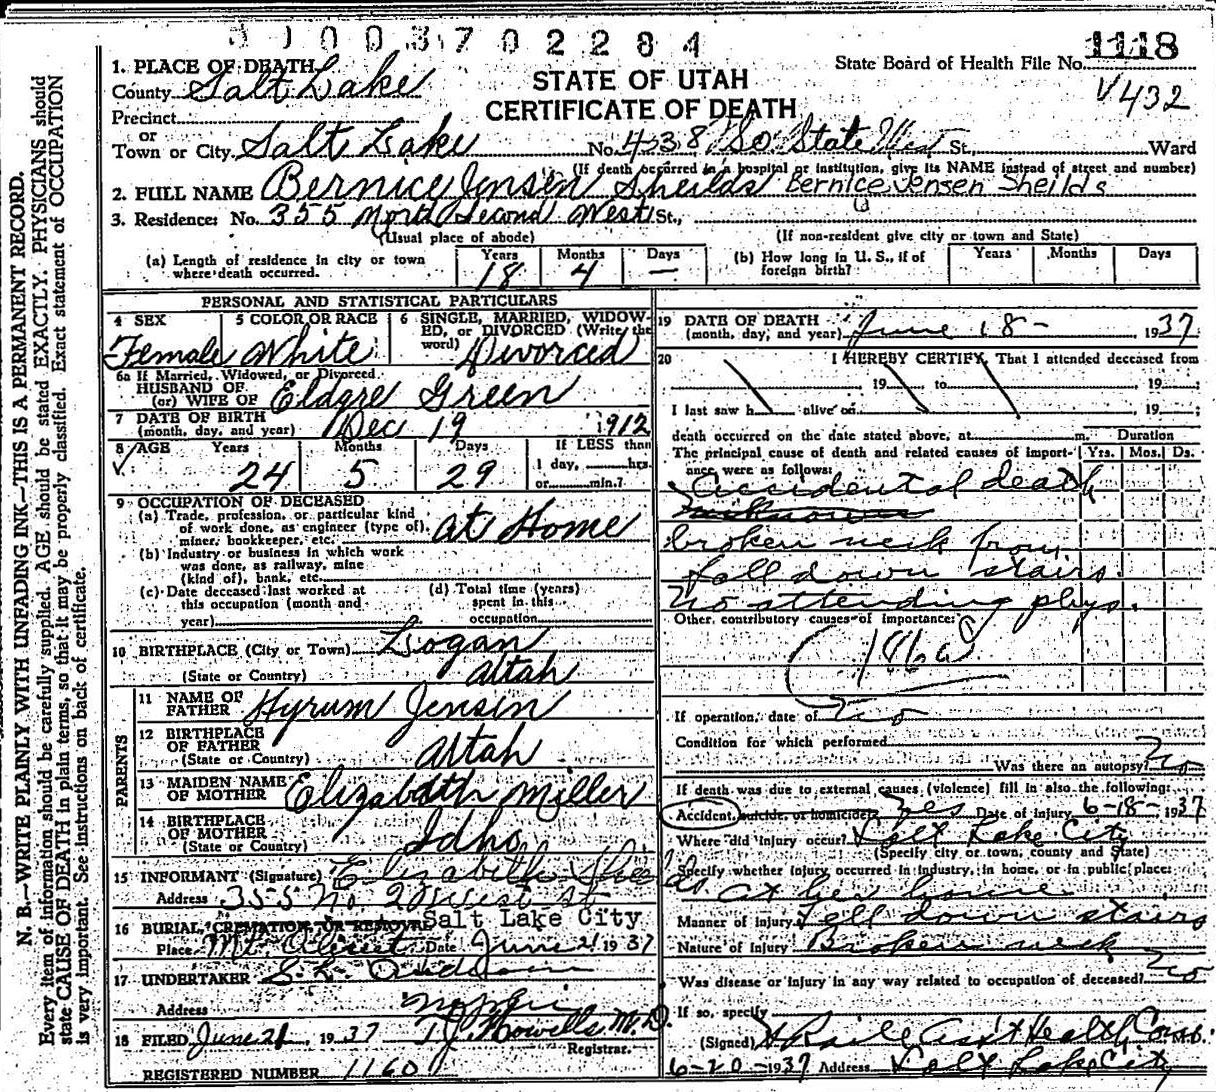 1003702284
1118
State Board of Health File No.
V432
STATE OF UTAH
CERTIFICATE OF DEATH
1. PLACE OF DEATH
County Salt Lake
Precinct
or
Town or City Salt Lake No. 438 So State West St., Ward
(If death occurred in a hospital or institution, give its NAME instead of street and number)
2. FULL NAME Bernice Jensen Sheilds Bernice Jensen Sheilds
3. Residence: No. 355 North Second West St.,
(Usual place of abode) (If non-resident give city or town and State)
(a) Length of residence in city or town where death occurred. Years 18 Months 4 Days —
(b) How long in U. S., if of foreign birth? Years Months Days
PERSONAL AND STATISTICAL PARTICULARS
4 SEX Female
5 COLOR OR RACE White
6 SINGLE, MARRIED, WIDOWED, or DIVORCED (Write the word) Divorced
6a If Married, Widowed, or Divorced
HUSBAND OF
(or) WIFE OF Eldgre Green
7 DATE OF BIRTH
(month, day, and year) Dec 19 1912
8 AGE Years 24 Months 5 Days 29 If LESS than 1 day, hrs. or min.?
9 OCCUPATION OF DECEASED
(a) Trade, profession, or particular kind of work done, as engineer (type of), miner, bookkeeper, etc. At Home
(b) Industry or business in which work was done, as railway, mine (kind of), bank, etc.
(c) Date deceased last worked at this occupation (month and year)
(d) Total time (years) spent in this occupation
10 BIRTHPLACE (City or Town) Logan
(State or Country) Utah
PARENTS
11 NAME OF FATHER Hyrum Jensen
12 BIRTHPLACE OF FATHER
(State or Country) Utah
13 MAIDEN NAME OF MOTHER Elizabeth Miller
14 BIRTHPLACE OF MOTHER
(State or Country) Idho
15 INFORMANT (Signature) Elizabeth Sheelds
Address 355 No. 2 West st
16 BURIAL, CREMATION, OR REMOVAL Salt Lake City
Place Mt. Olivet Date June 21 1937
17 UNDERTAKER
Address
18 FILED June 21, 1937 T.J. Howells M.D.
Registrar.
REGISTERED NUMBER 1160
19 DATE OF DEATH
(month, day, and year) June 18- 1937
20 I HEREBY CERTIFY, That I attended deceased from
19 to 19 ;
I last saw h alive on , 19 ;
death occurred on the date stated above, at m. Duration
The principal cause of death and related causes of importance were as follows: Yrs. Mos. Ds.
Accidental death
unknown
broken neck from
fall down stairs.
No attending phys.
Other contributory causes of importance:
186a
If operation, date of No
Condition for which performed
Was there an autopsy? No
If death was due to external causes (violence) fill in also the following:
Accident, suicide, or homicide? Yes Date of injury 6-18- 1937
Where did injury occur? Salt Lake City
(Specify city or town, county and State)
Specify whether injury occurred in industry, in home, or in public place:
at her home
Manner of injury Fell down stairs
Nature of Injury Broken neck
Was disease or injury in any way related to occupation of deceased? No
If so, specify
(Signed) Ass't Health Com. M.D.
6-20-1937 Address Salt Lake City
N. B.—WRITE PLAINLY WITH UNFADING INK—THIS IS A PERMANENT RECORD.
Every item of information should be carefully supplied. AGE should be stated EXACTLY. PHYSICIANS should
state CAUSE OF DEATH in plain terms, so that it may be properly classified. Exact statement of OCCUPATION
is very important. See instructions on back of certificate.